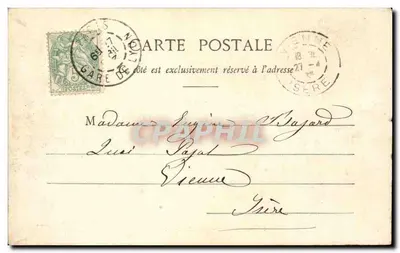 CARTE POSTALE
Ce côté est exclusivement réservé à l'adresse
GARE DE LYON
VIENNE
ISÈRE
27
Madame Eugène Bajard
Quai Pajot
Vienne
Isère